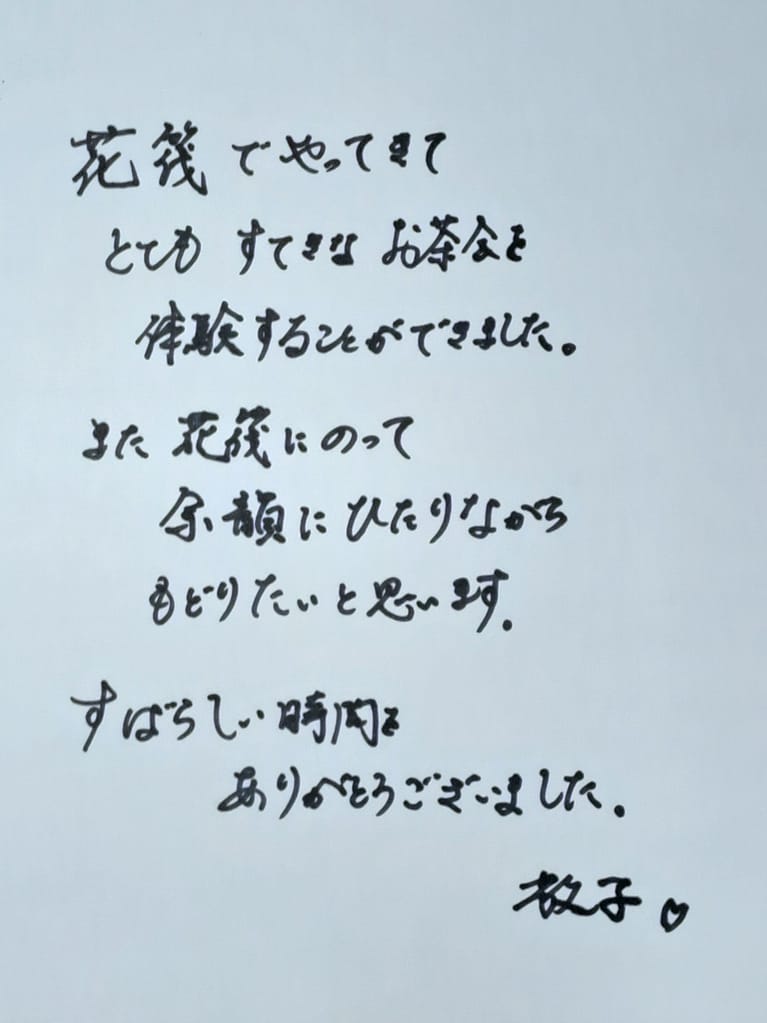 花筏でやってきて
とても すてきな お茶会を
体験することができました。
また 花筏にのって
余韻に ひたりながら
もどりたいと思います。
すばらしい時間を
ありがとうございました。
教子♡